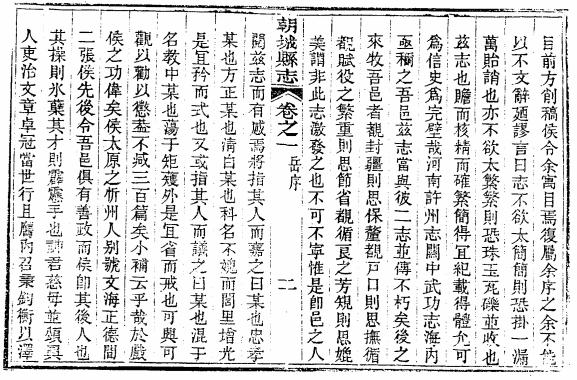 目前方創稿侯令余寓目焉復屬余序之余不能
以不文辭廼謬言曰志不欲太簡簡則恐掛一漏
萬貽誚也亦不欲太繁繁則恐珠玉瓦礫並收也
兹志也贍而核精而確繁簡得宜紀載得體允可
爲信史爲完璧哉河南許州志關中武功志海内
亟稱之吾邑兹志當與彼二志並傳不朽矣後之
來牧吾邑者覩封疆則思保釐覩戸口則思撫循
覩賦役之繁重則思節省覩循良之芳規則思媲
美謂非此志激發之也不可不寧惟是即邑之人
朝城縣志 卷之一 岳序 二
閲兹志而有感焉將指其人而嘉之曰某也忠孝
某也方正某也清白某也科名不媿而閭里增光
是宜矜而式也又或指其人而議之曰某也混于
名教中某也蕩于矩矱外是宜省而戒也可興可
觀以勸以懲葢不减三百篇矣小補云乎哉於戯
侯之功偉矣侯太原之忻州人别號文海正德間
二張侯先後令吾邑俱有善政而侯卽其後人也
其操則氷蘗其才則霹靂手也君慈母並頌眞
人吏治文章卓冠當世行且膺内召秉鈞衡以澤